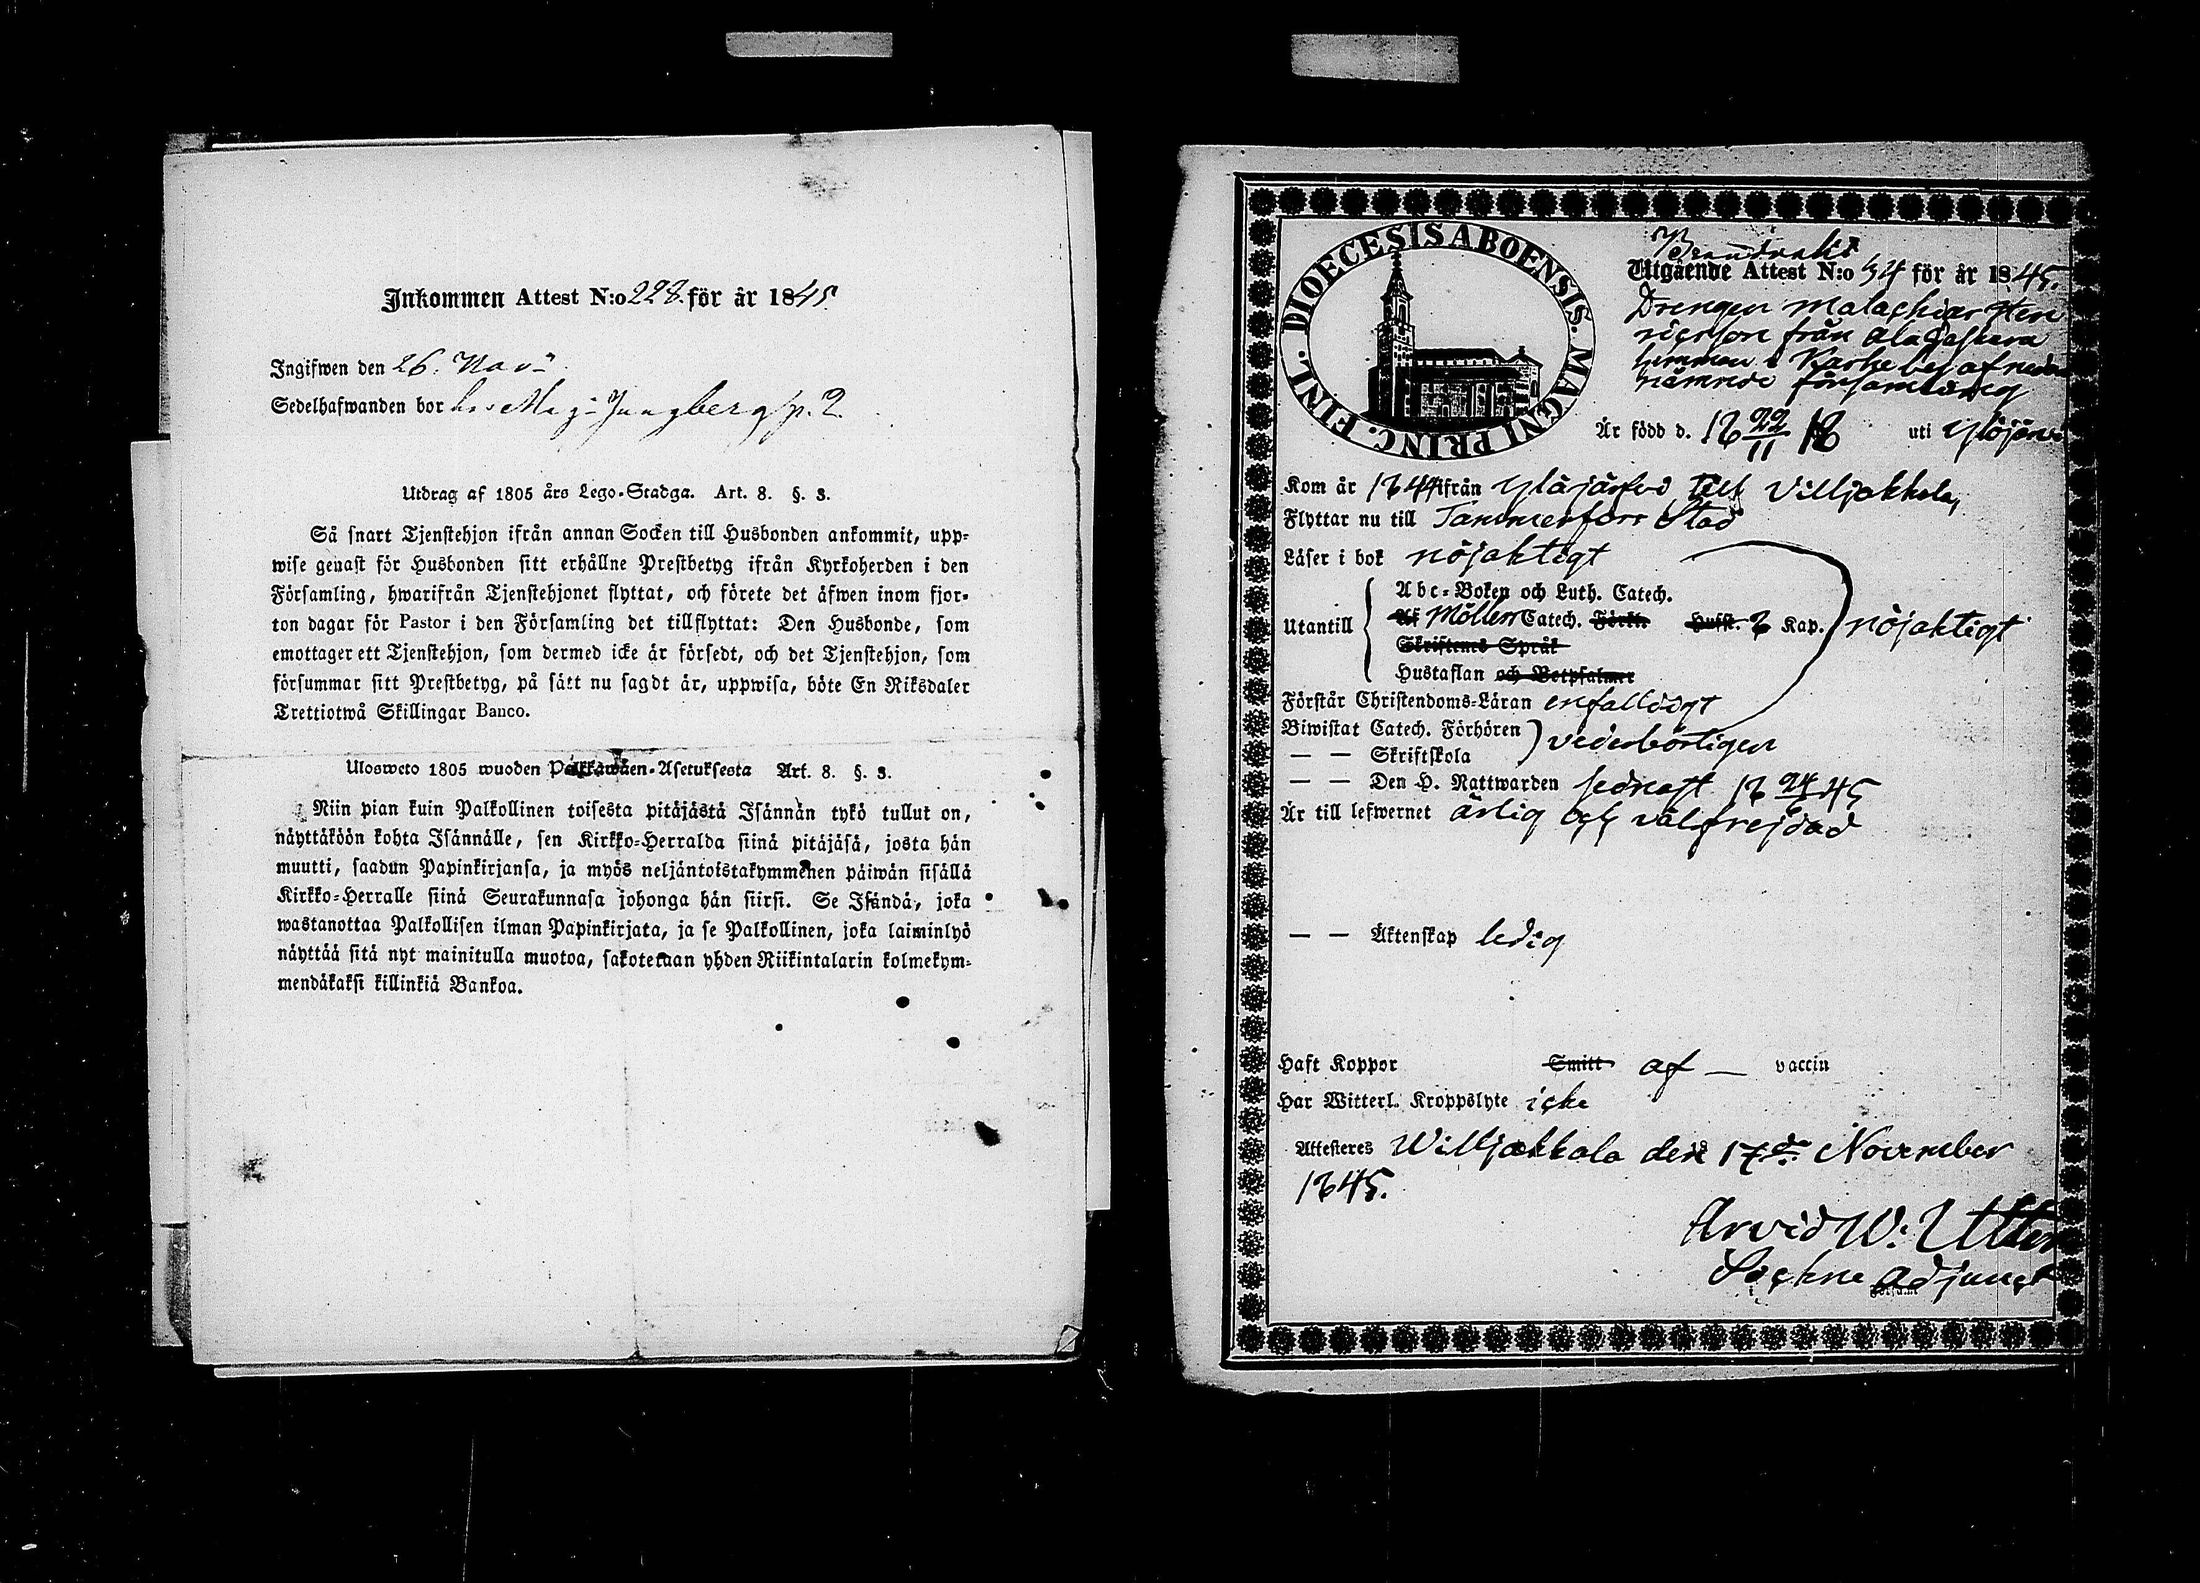 Inkommen Attest N:o 228. för år 1845.
Ingifwen den 26. Nov:
Sedelhafwanden bor hos Ljungberg p. 2.
Utdrag af 1805 års Lego-Stadga. Art. 8. §. 3.
Så snart Tjenstehjon ifrån annan Socken till Husbonden ankommit, upp-
wise genast för Husbonden sitt erhållne Prestbetyg ifrån Kyrkoherden i den
Församling, hwarifrån Tjenstehjonet flyttat, och förete det äfwen inom fjor-
ton dagar för Pastor i den Församling det tillflyttat: Den Husbonde, som
emottager ett Tjenstehjon, som dermed icke är försedt, och det Tjenstehjon, som
försummar sitt Prestbetyg, på sätt nu sagdt är, uppwisa, böte En Riksdaler
Trettiotwå Skillingar Banco.
Ulosweto 1805 wuoden Palkkawäen-Asetuksesta Art. 8. §. 3.
Niin pian kuin Palkollinen toisesta pitäjästä Isännän tykö tullut on,
näyttäköön kohta Isännälle, sen Kirkko-Herralda siinä pitäjäsä, josta hän
muutti, saadun Papinkirjansa, ja myös neljäntoistakymmenen päiwän sisällä
Kirkko-Herralle siinä Seurakunnasa johonga hän siirsi. Se Isändä, joka
wastanottaa Palkollisen ilman Papinkirjata, ja se Palkollinen, joka laiminlyö
näyttää sitä nyt mainitulla muotoa, sakotetaan yhden Riikintalarin kolmekym-
mendäkaksi killinkiä Bankoa.
DIOECESIS ABOENSIS. MAGNI PRINC. FINL.
Utgående Attest N:o 54 för år 1845.
Drengen Malachias Hen
ricsson från Alapaskera
hemman i Karhe by af nedan
nämnde församling
Är född d. 18 22/11 18 uti Ylöjärvi
Kom år 1844 ifrån Ylöjärvi till Viljakkala,
Flyttar nu till Tammerfors Stad
Läser i bok nöjaktigt
Utantill
Abc-Boken och Luth. Catech.
Af Möllers Catech. Förkl. Hufst. 6 Kap. nöjaktigt
Skriftenes Språk
Hustaflan och Botpsalmer
Förstår Christendoms-Läran enfalldigt
Biwistat Catech. Förhören
— — Skriftskola vederbörligen
— — Den H. Nattwarden sednast 18 24/6 45
Är till lefwernet ärlig och välfrejdad
— — Äktenskap ledig
Haft Koppor Smitt af — vaccin
Har Witterl. Kroppslyte icke
Attesteres Wiljakkala den 17de November
1845.
Arvid W: Utter
Sockne Adjunct